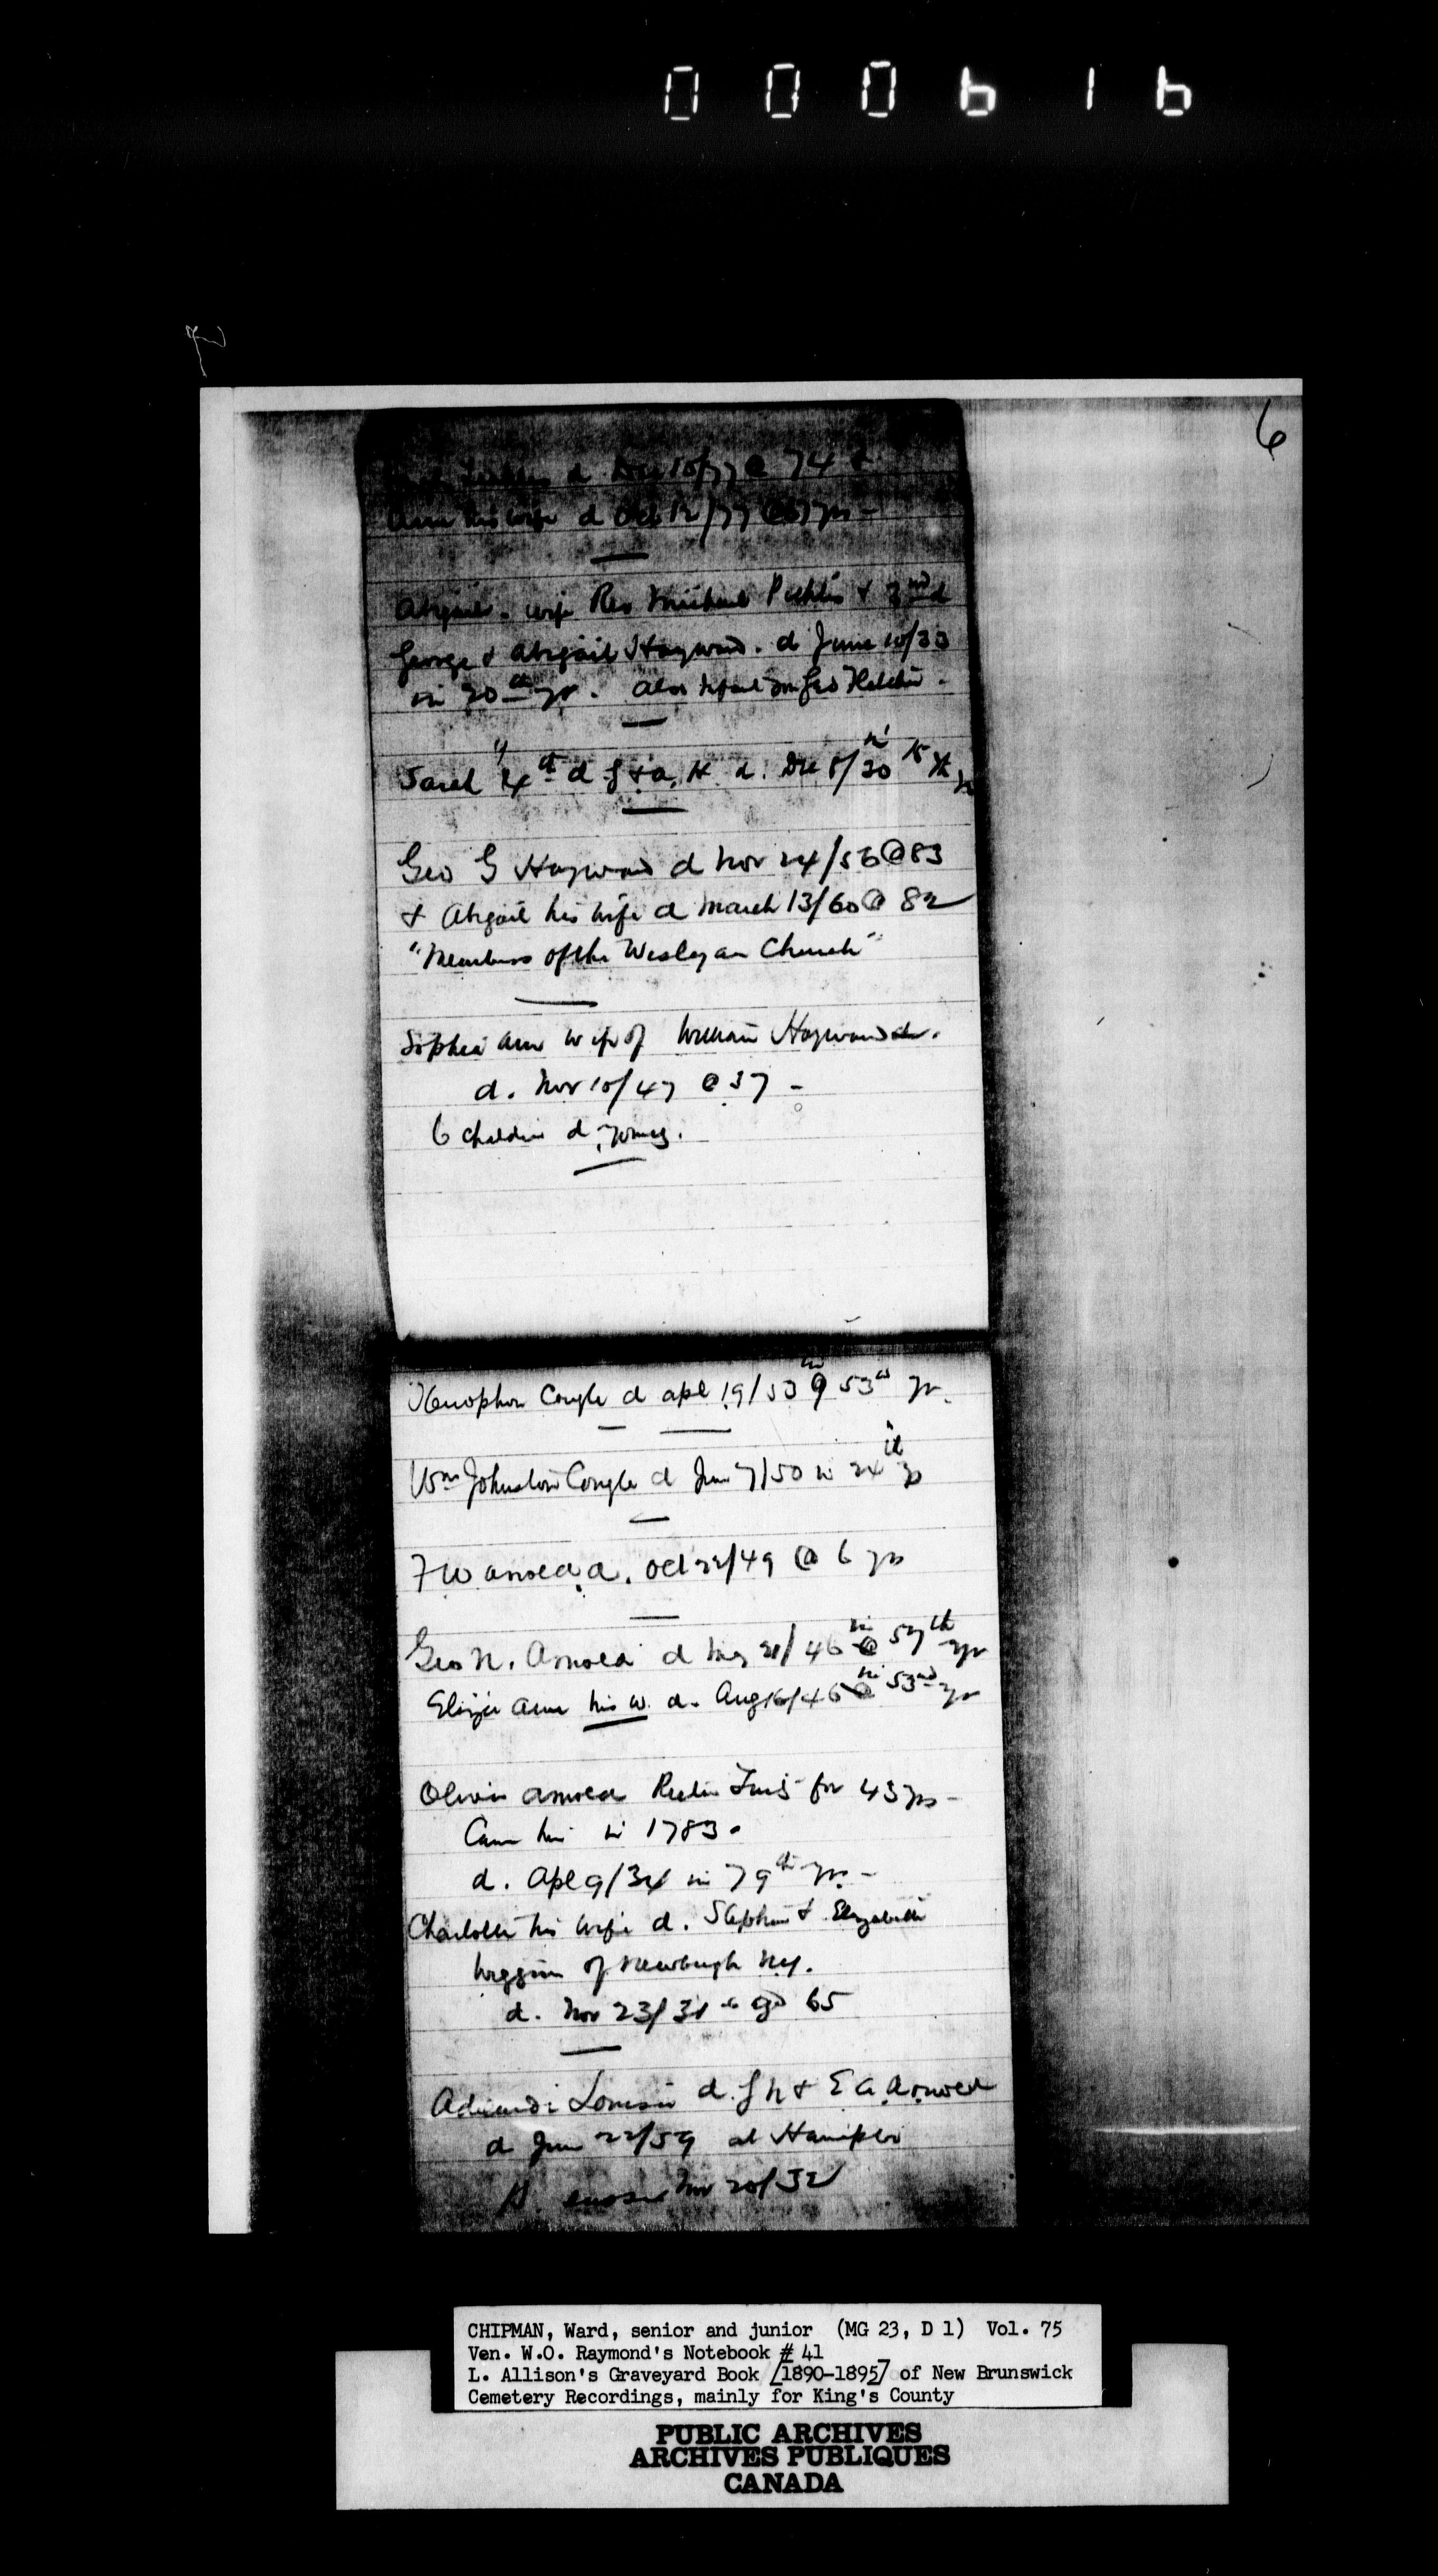 000616
6
d Dec 10/77 @ 74 &
Ann his wife d Oct 12/77 @ 67 yrs -
Abigail. wife Rev Michael Pickles & 3nd d
George & Abigail Hayward. d June 10/33
in 20th yr. Also infant son Geo Fletcher.
Sarah 4th d G & A. H. d. Dec 8/30 in 15th yr
Geo G Hayward d Nov 24/56 @ 83
& Abigail his wife d March 13/60 @ 82
"Members of the Wesleyan Church"
Sophia Ann wife of William Hayward
d. Nov 10/47 @ 37 -
6 children d. young.
Xenophon Cougle d Apl 19/53 in 53d yr.
Wm Johnston Cougle d Jun 7/50 in 24th yr
F W Arnold d. Oct 22/49 @ 6 yrs
Geo N. Arnold d May 21/46 in 57th yr
Eliza Ann his w. d. Aug 16/46 in 53nd yr
Oliver Arnold Rector for 43 yrs -
Came in 1783.
d. Apl 9/34 in 79th yr. -
Charlotte his wife d. Stephen & Elizabeth
Wiggins of Newburgh N.Y.
d. Nov 23/31 aged 65
Louisa d. G N & E A Arnold
d Jun 22/59 at Hampton
Nov 20/32
CHIPMAN, Ward, senior and junior (MG 23, D 1) Vol. 75
Ven. W.O. Raymond's Notebook # 41
L. Allison's Graveyard Book [1890-1895] of New Brunswick
Cemetery Recordings, mainly for King's County
PUBLIC ARCHIVES
ARCHIVES PUBLIQUES
CANADA